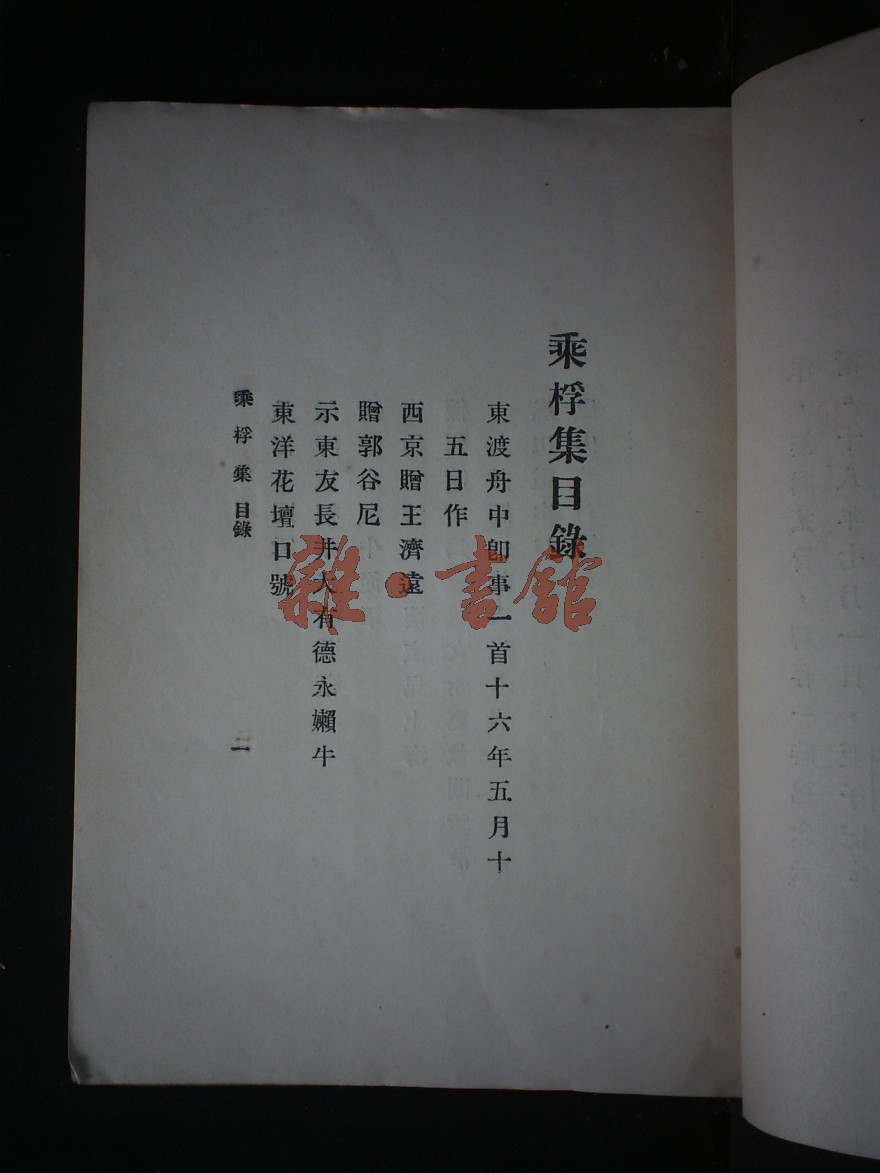 乘桴集目錄
東渡舟中卽事一首十六年五月十
五日作
西京贈王濟遠
贈郭谷尼
示東友長井大有德永嬾牛
東洋花壇口號
乘桴集 目錄
一
雜·書館